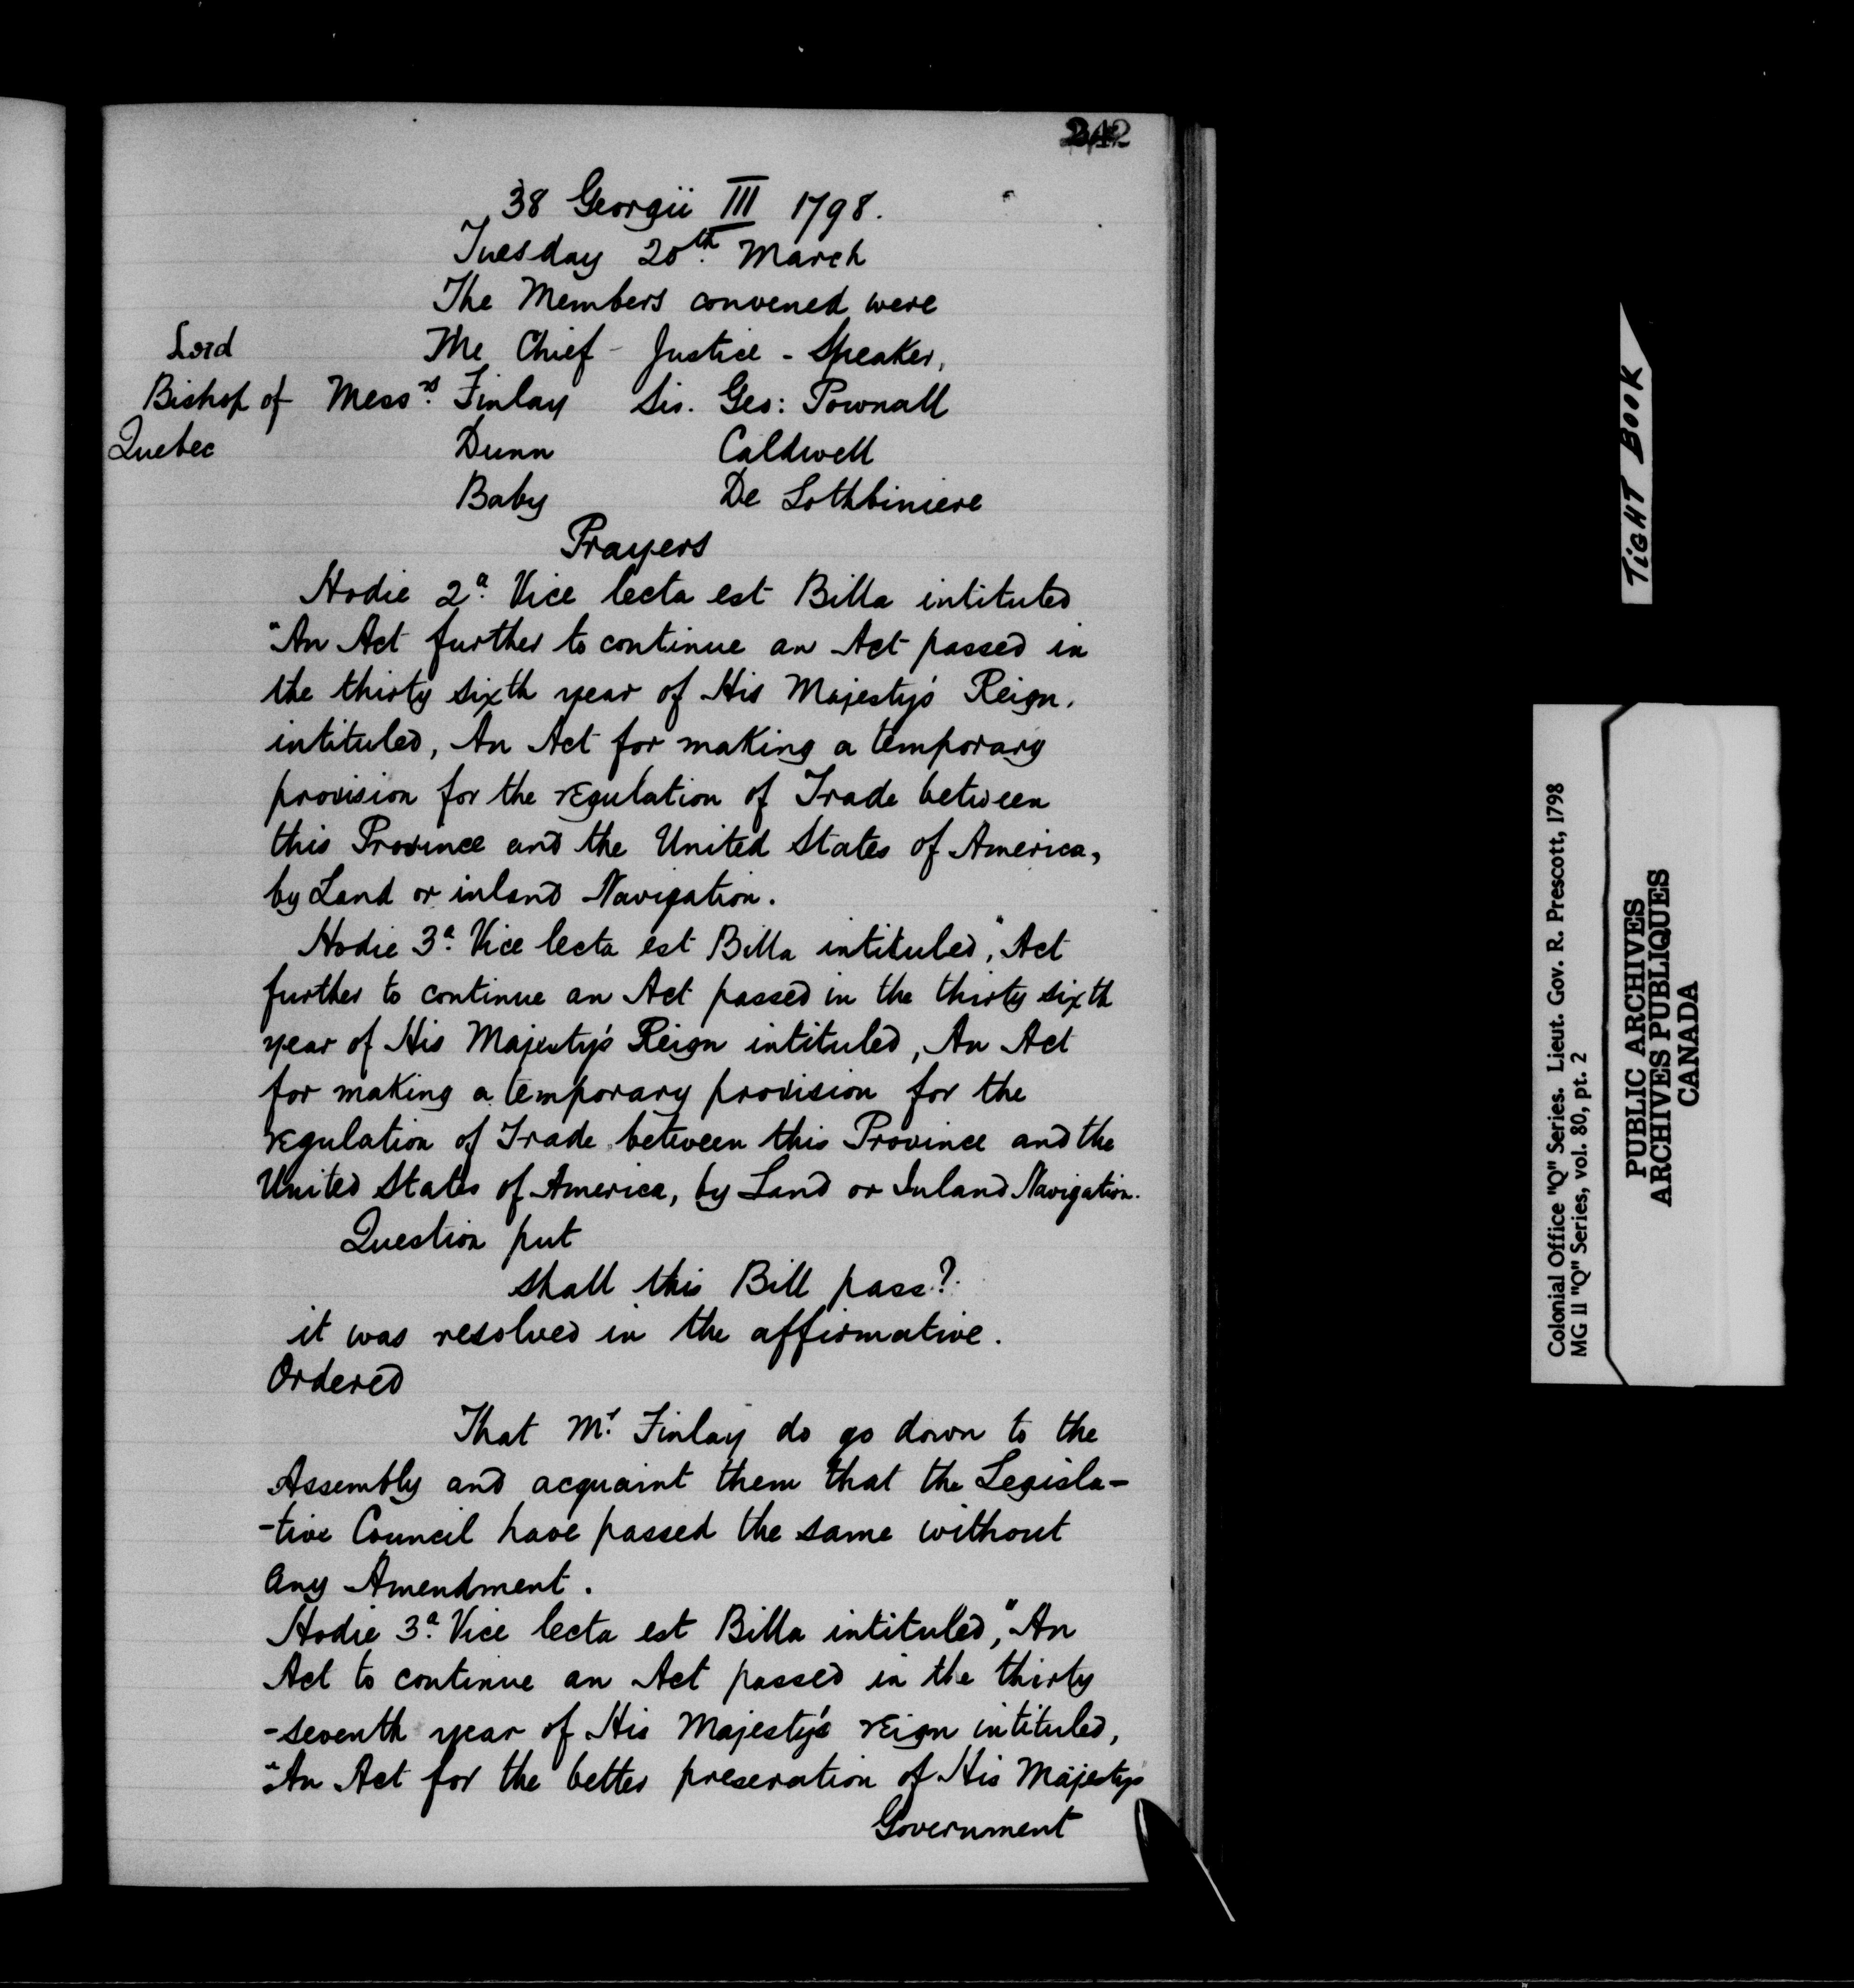 242
38 Georgii III 1798.
Tuesday 20th. March
The Members convened were
Lord The Chief - Justice - Speaker,
Bishop of Messrs. Finlay Sir. Geo: Pownall
Quebec Dunn Caldwell
Baby De Lothbiniere
Prayers
Hodie 2a. Vice lecta est Billa intituled
"An Act further to continue an Act passed in
the thirty sixth year of His Majesty's Reign,
intituled, An Act for making a temporary
provision for the regulation of Trade between
this Province and the United States of America,
by Land or inland Navigation.
Hodie 3a. Vice lecta est Billa intituled, "Act
further to continue an Act passed in the thirty sixth
year of His Majesty's Reign intituled, An Act
for making a temporary provision for the
regulation of Trade between this Province and the
United States of America, by Land or Inland Navigation.
Question put
shall this Bill pass?
it was resolved in the affirmative.
Ordered
That Mr. Finlay do go down to the
Assembly and acquaint them that the Legisla-
-tive Council have passed the same without
any Amendment.
Hodie 3a. Vice lecta est Billa intituled, "An
Act to continue an Act passed in the thirty
-seventh year of His Majesty's reign intituled,
"An Act for the better preseration of His Majestys
Government
TIGHT BOOK
Colonial Office "Q" Series. Lieut. Gov. R. Prescott, 1798
MG 11 "Q" Series, vol. 80, pt. 2
PUBLIC ARCHIVES
ARCHIVES PUBLIQUES
CANADA